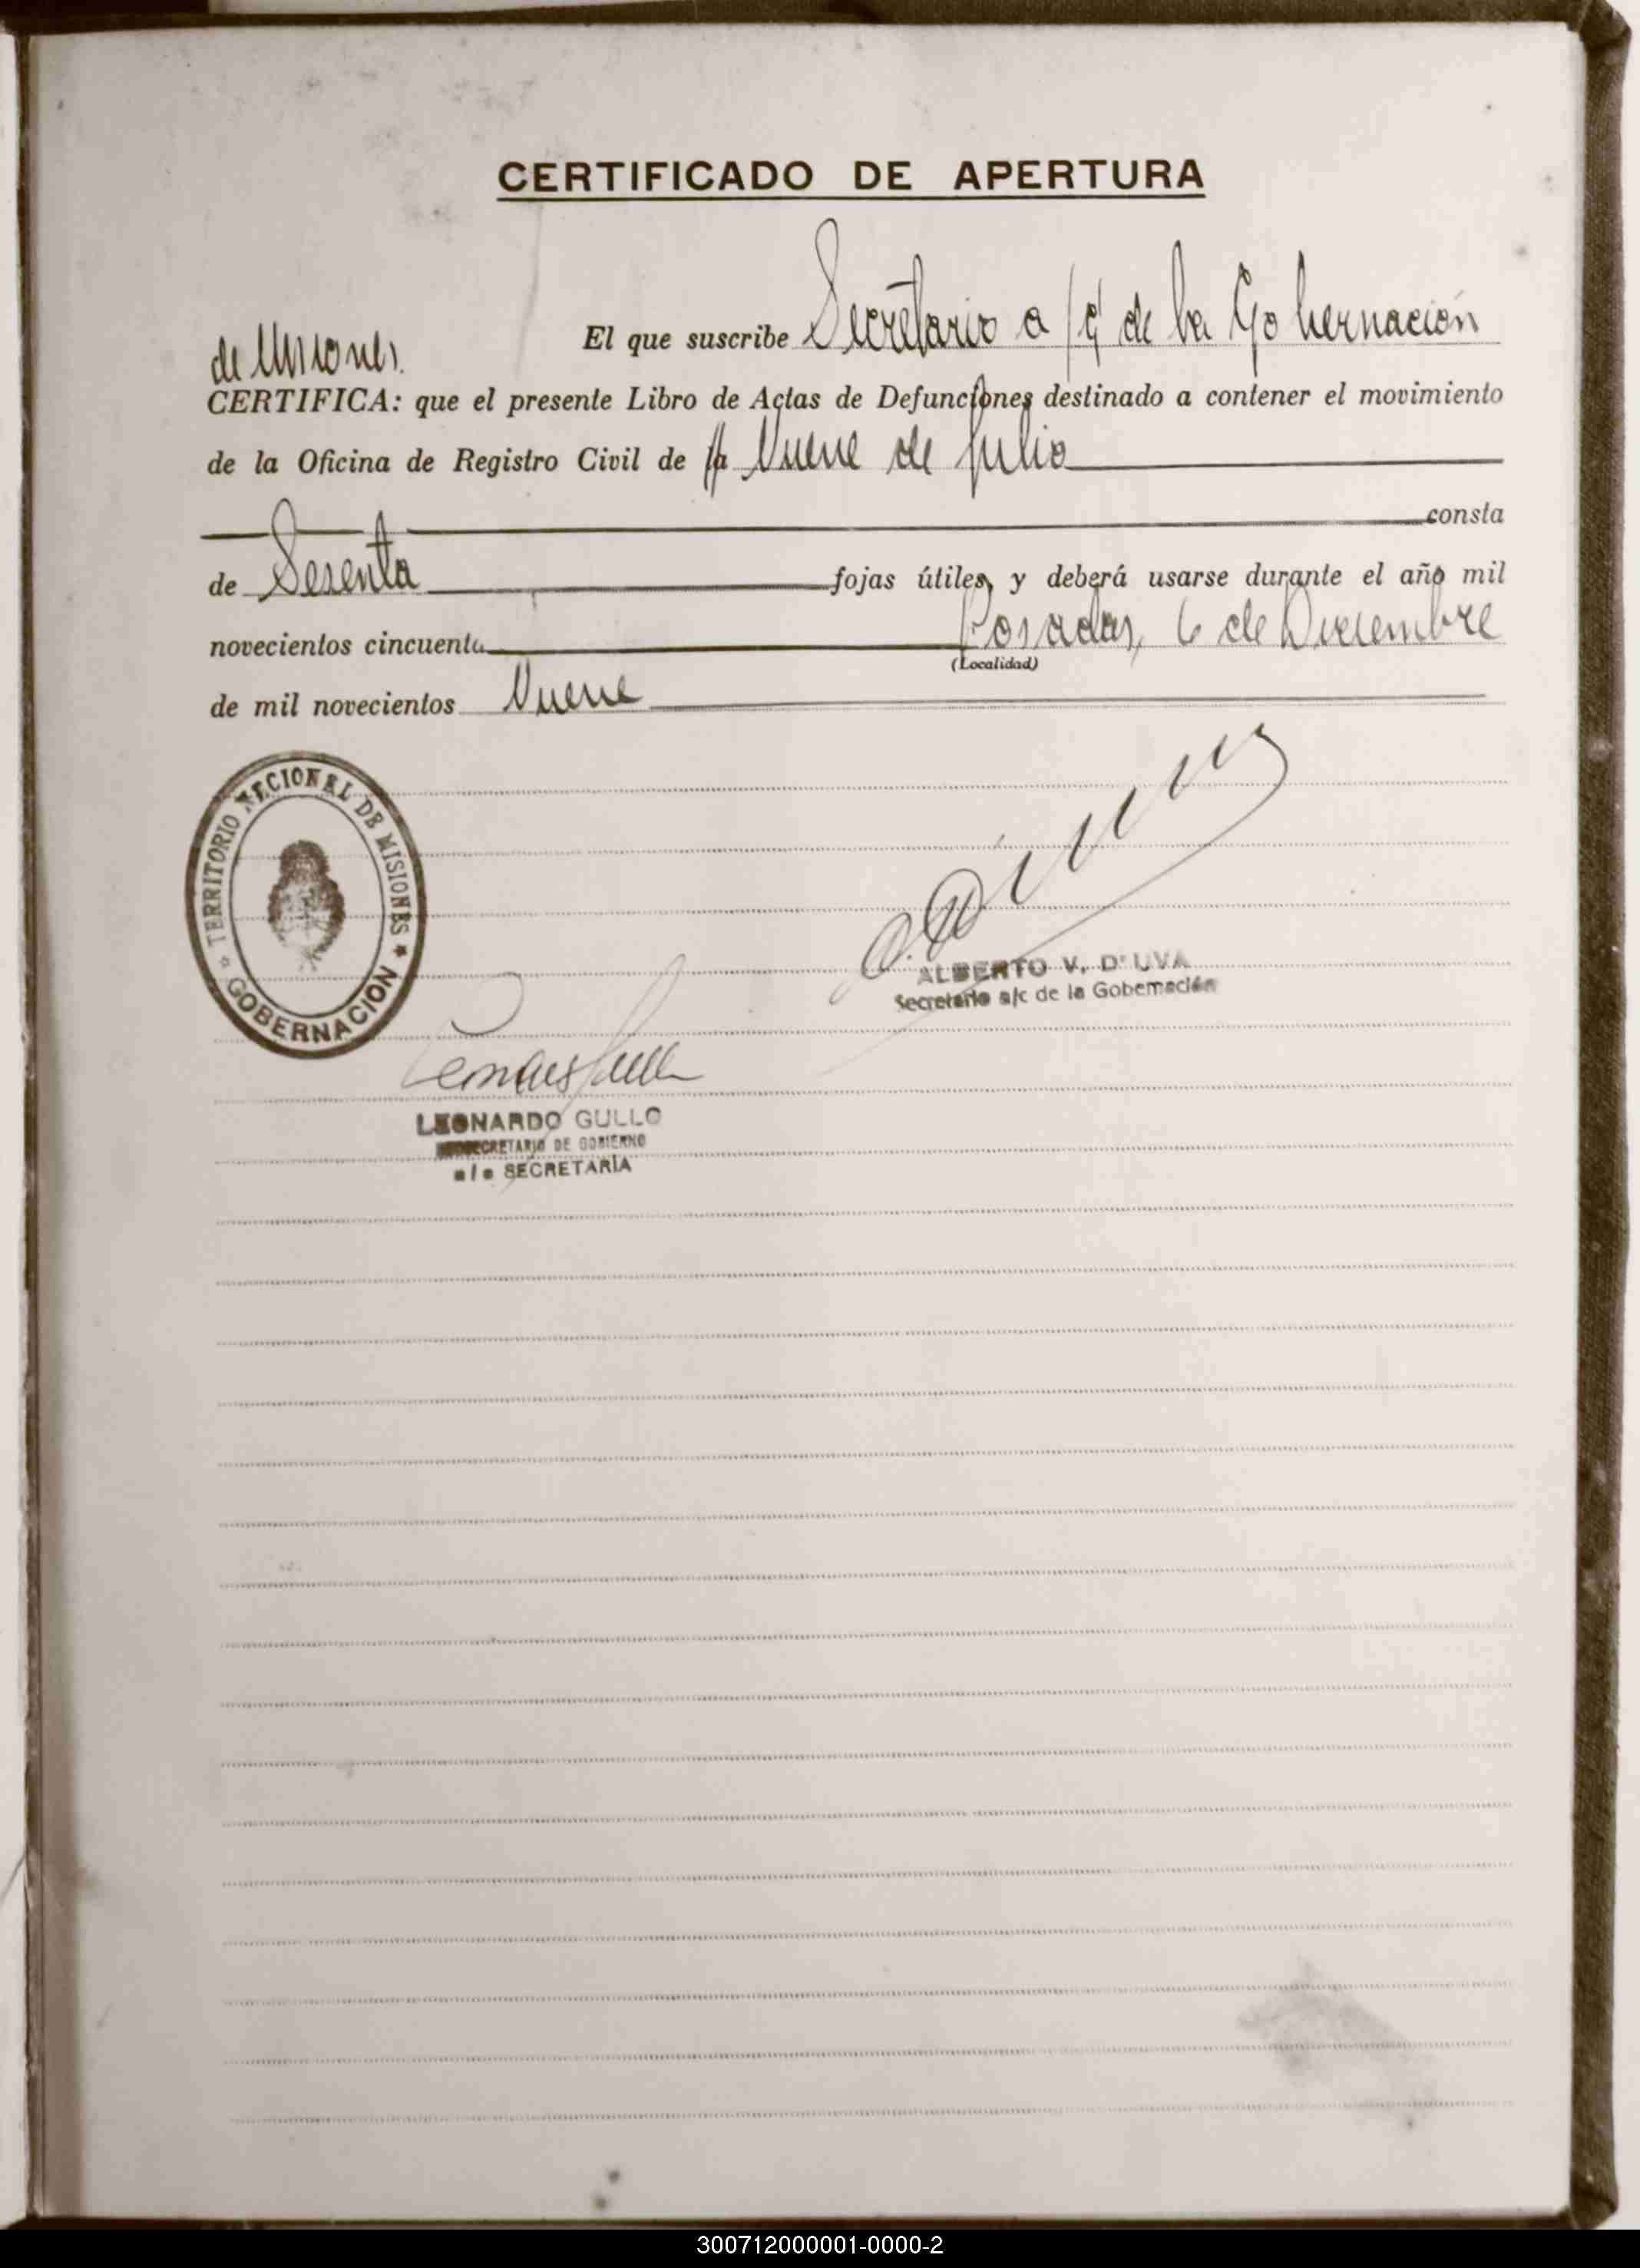 CERTIFICADO DE APERTURA
El que suscribe Secretario a/c de la Gobernación
de Misiones.
CERTIFICA: que el presente Libro de Actas de Defunciones destinado a contener el movimiento
de la Oficina de Registro Civil de Nueve de Julio
consta
de Sesenta fojas útiles, y deberá usarse durante el año mil
novecientos cincuenta Posadas, 6 de Diciembre
(Localidad)
de mil novecientos Nueve
TERRITORIO NACIONAL DE MISIONES
GOBERNACION
ALBERTO V. D'UVA
Secretario a/c de la Gobernación
LEONARDO GULLO
SUBSECRETARIO DE GOBIERNO
a/c SECRETARÍA
300712000001-0000-2